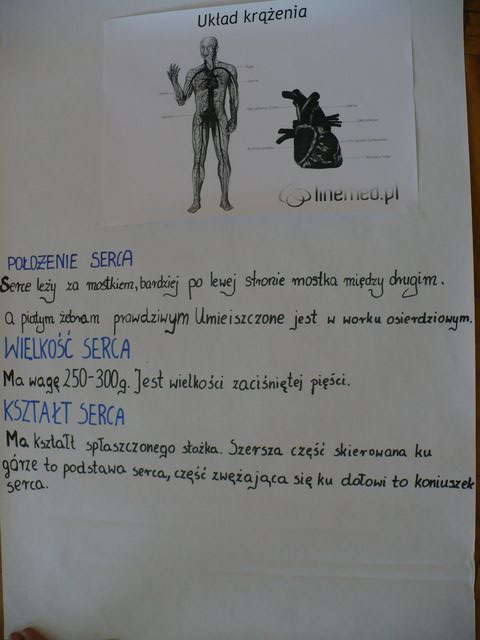 Układ krążenia
linemed.pl
POŁOŻENIE SERCA
Serce leży za mostkiem, bardziej po lewej stronie mostka między drugim.
a piątym żebrem prawdziwym Umieiszczone jest w worku osierdziowym.
WIELKOŚĆ SERCA
Ma wagę 250-300g. Jest wielkości zaciśniętej pięści.
KSZTAŁT SERCA
Ma kształt spłaszczonego stożka. Szersza część skierowana ku
górze to podstawa serca, część zwężająca się ku dołowi to koniuszek
serca.